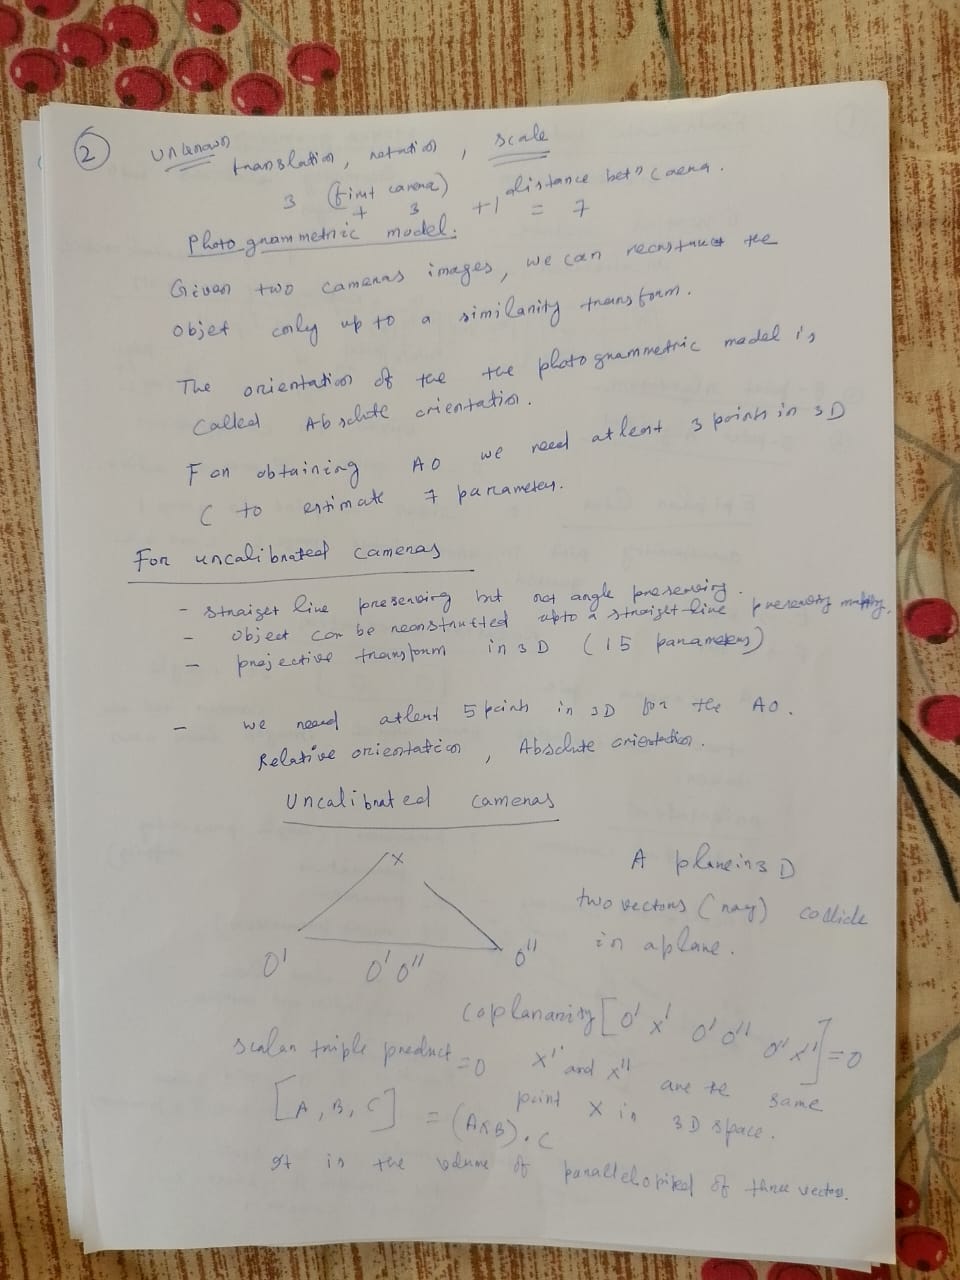 2
Unknown
translation, rotation, scale
3 (first camera) + 3 +1 distance betn camera. = 7
Photogrammetric model.
Given two cameras images, we can reconstruct the
objet only up to a similarity transform.
The orientation of the the photogrammetric model is
called Absolute orientation.
For obtaining AO we need atleast 3 points in 3D
( to estimate 7 parameters.
For uncalibrated cameras
- straiget line preserving but not angle preserving.
- object can be reonstructed upto a straiget-line preserving mapping.
- projective transform in 3D (15 parameters)
- we need atleast 5 points in 3D for the AO.
Relative orientation, Absolute orientation.
Uncalibrated cameras
X
O' O'O" O"
A plane in 3D
two vectors (ray) collide
in a plane.
coplanarity [O'X' O'O" O"X"] = 0
scalar triple product = 0
X' and X" are the same
point X in 3D space.
[A, B, C] = (A×B).C
It is the volume of parallelopiped of three vectors.